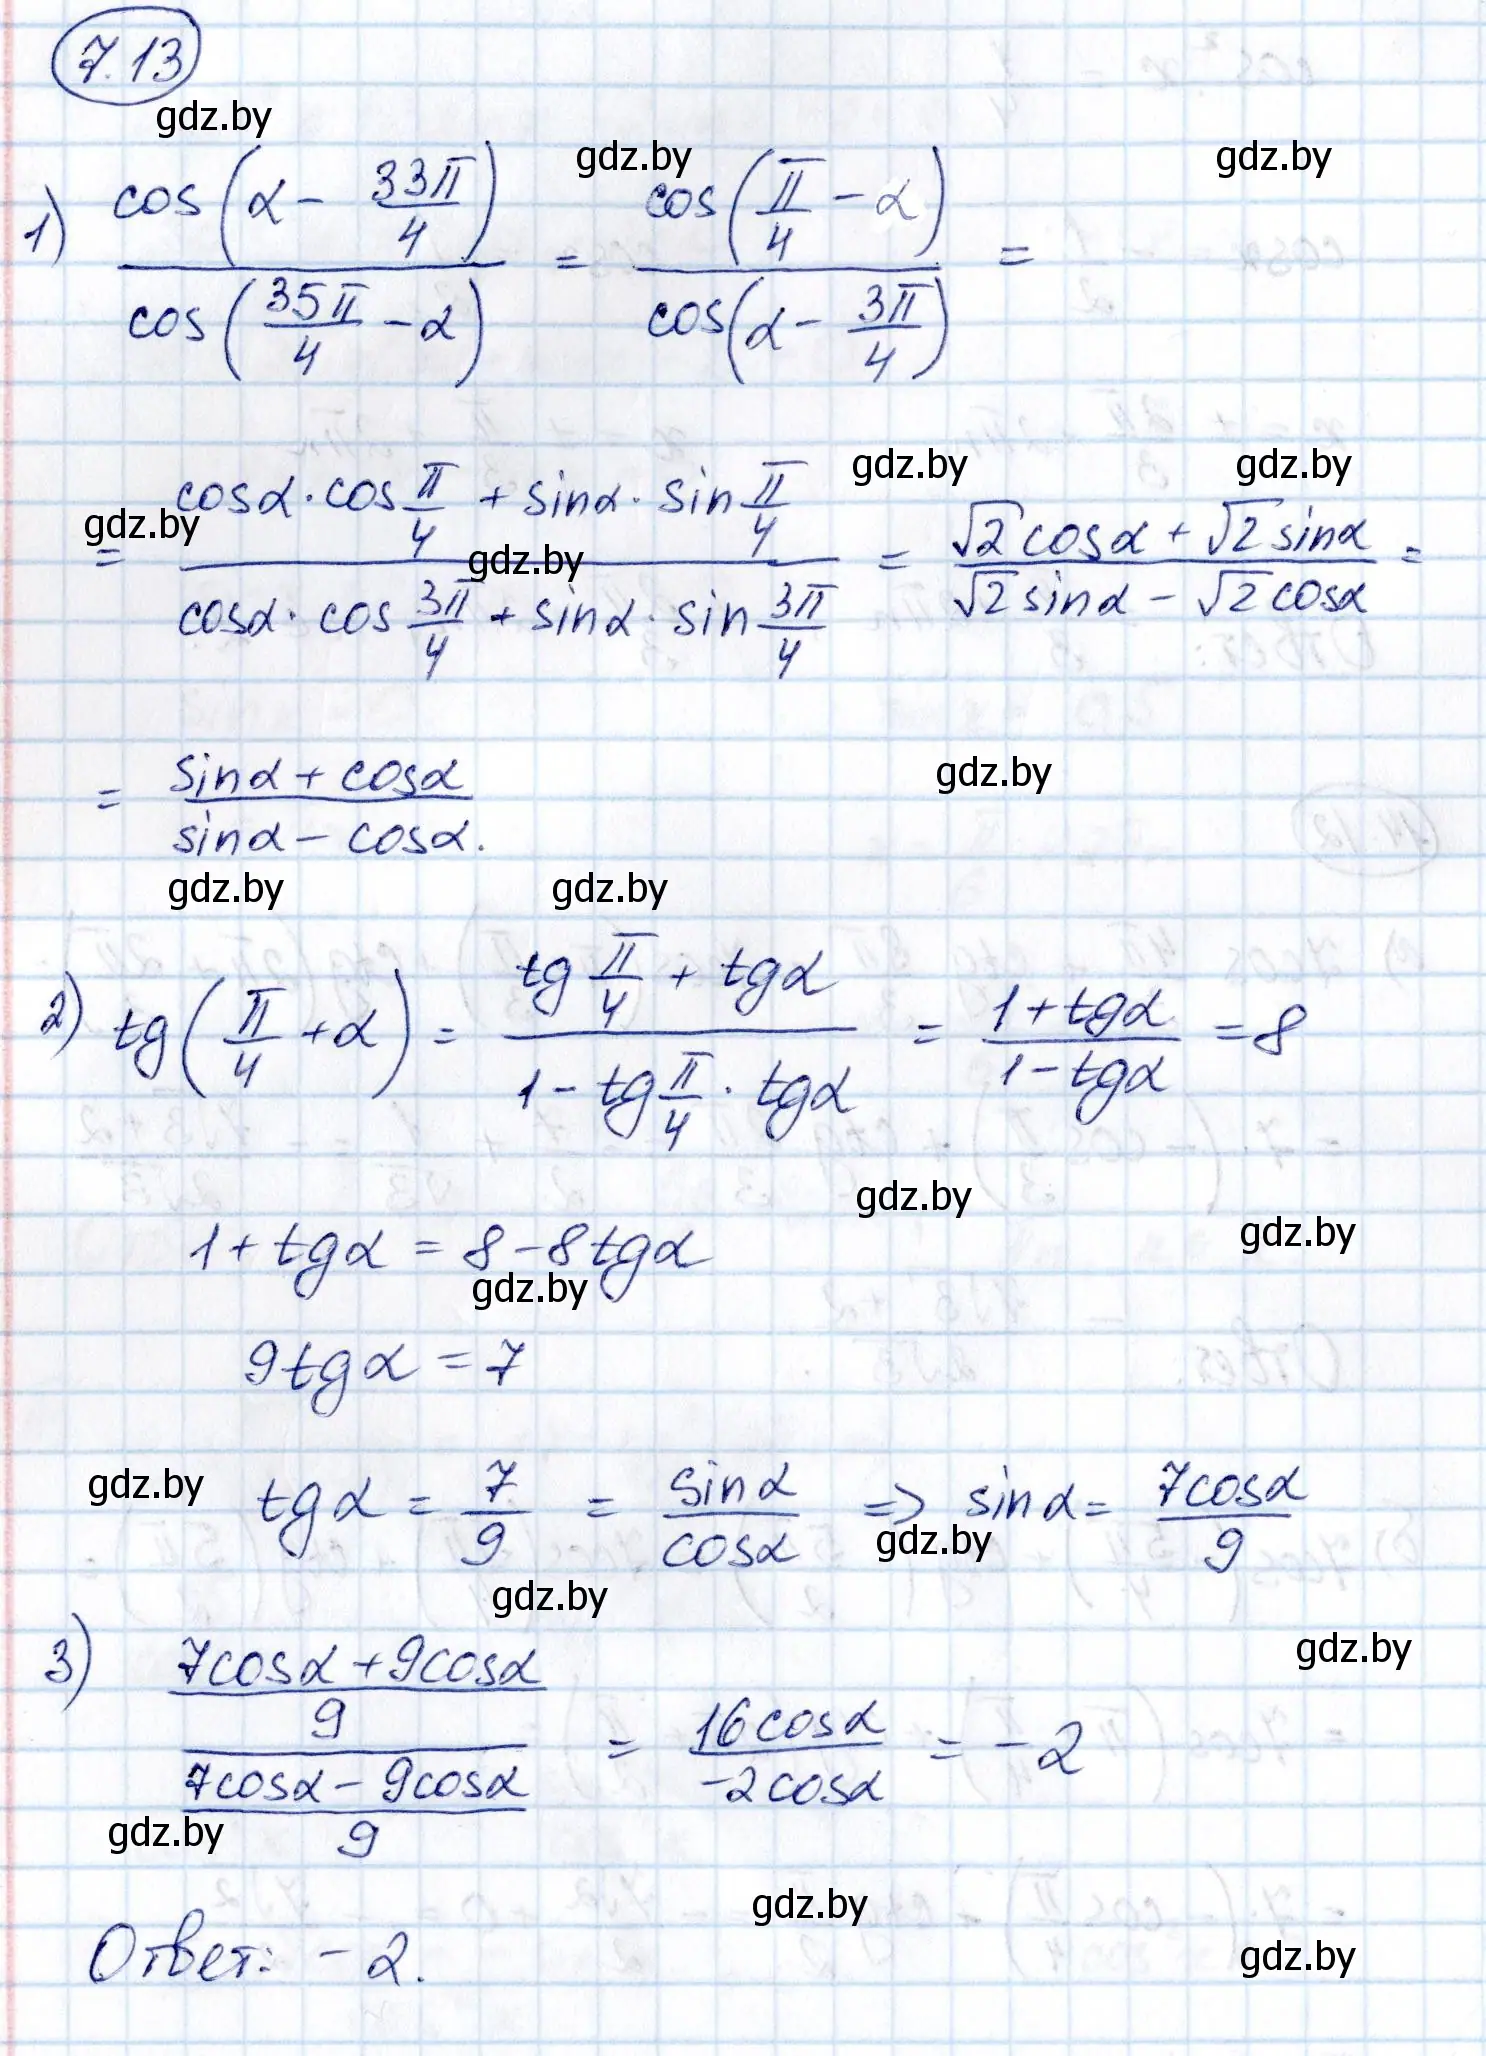 7.13
gdz.by
gdz.by
gdz.by
1) cos(α - 33π/4) / cos(35π/4 - α) = cos(π/4 - α) / cos(α - 3π/4) =
gdz.by
gdz.by
gdz.by
gdz.by
= (cosα·cos π/4 + sinα·sin π/4) / (cosα·cos 3π/4 + sinα·sin 3π/4) = (√2 cosα + √2 sinα) / (√2 sinα - √2 cosα) =
gdz.by
= (sinα + cosα) / (sinα - cosα).
gdz.by
gdz.by
2) tg(π/4 + α) = (tg π/4 + tgα) / (1 - tg π/4 · tgα) = (1 + tgα) / (1 - tgα) = 8
gdz.by
gdz.by
1 + tgα = 8 - 8tgα
gdz.by
9tgα = 7
gdz.by
tgα = 7/9 = sinα/cosα => sinα = 7cosα/9
gdz.by
gdz.by
gdz.by
3) ((7cosα + 9cosα)/9) / ((7cosα - 9cosα)/9) = 16cosα / -2cosα = -2
gdz.by
gdz.by
gdz.by
Ответ: -2.